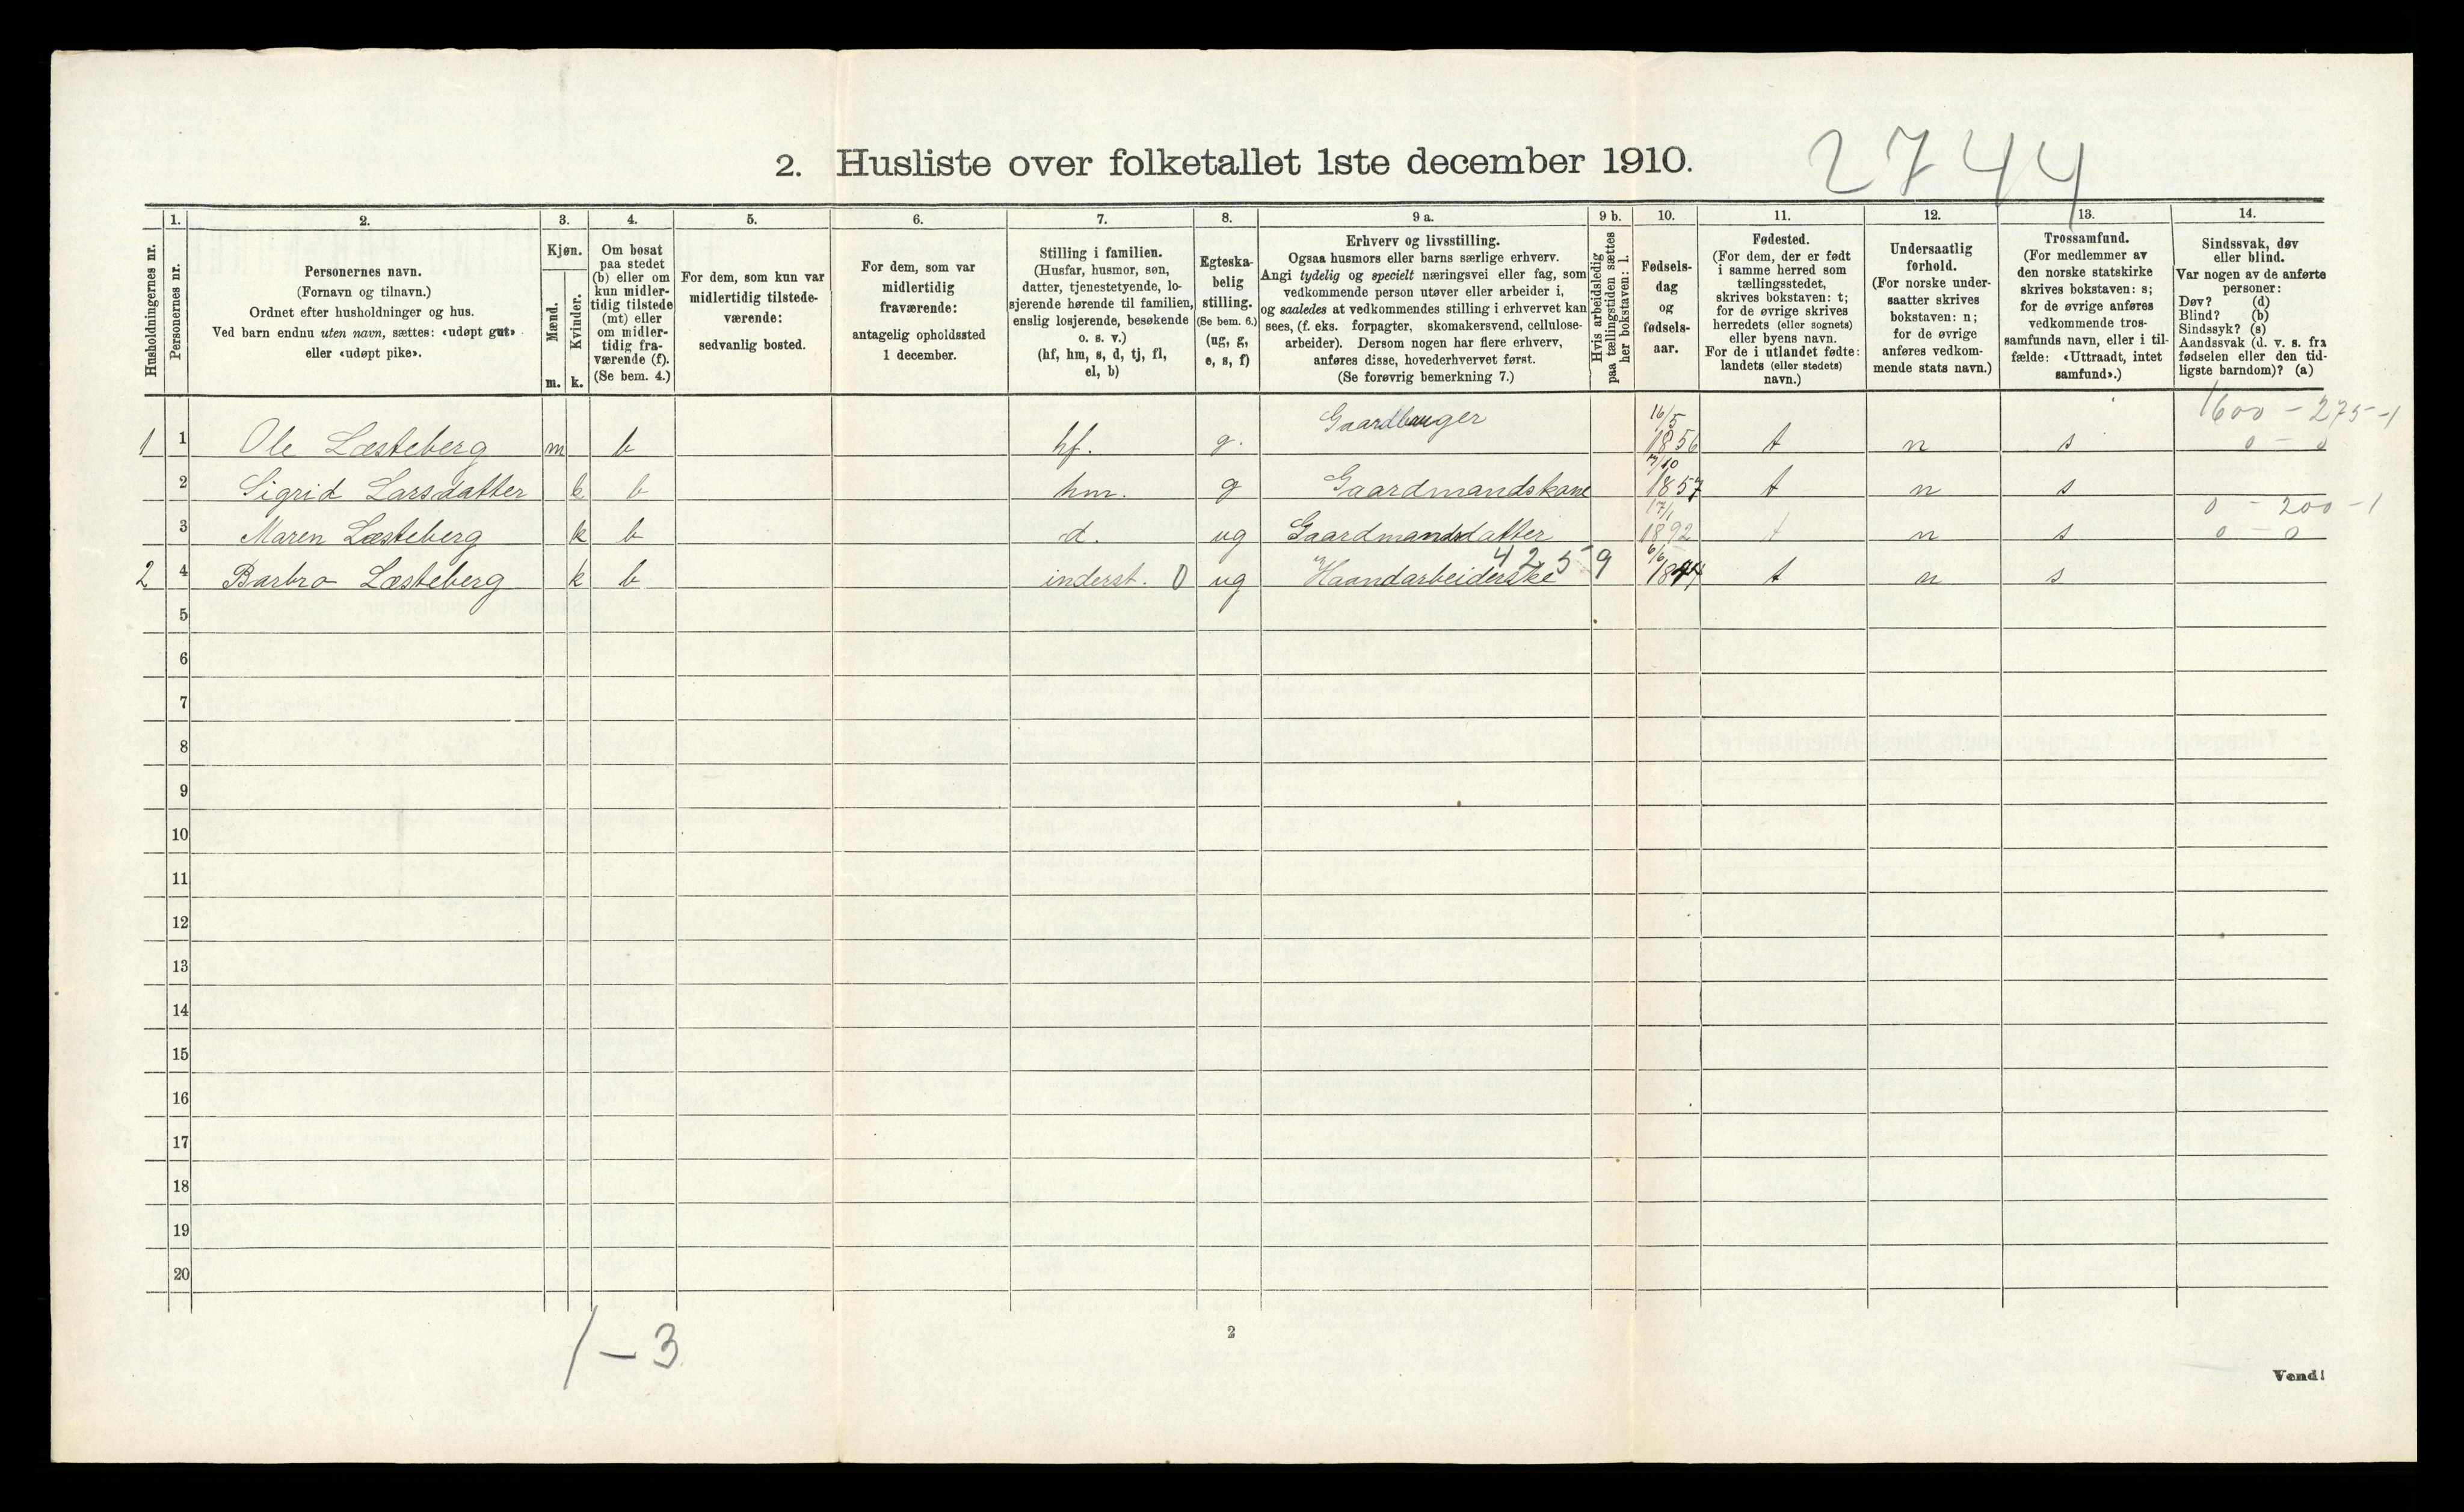 2744
2. Husliste over folketallet 1ste december 1910.
Husholdningernes nr.
1.
Personernes nr.
2.
Personernes navn.
(Fornavn og tilnavn.)
Ordnet efter husholdninger og hus.
Ved barn endnu uten navn, sættes: «udøpt gut»
eller «udøpt pike».
3.
Kjøn.
Mænd.
Kvinder.
m. k.
4.
Om bosat
paa stedet
(b) eller om
kun midler-
tidig tilstede
(mt) eller
om midler-
tidig fra-
værende (f).
(Se bem. 4.)
5.
For dem, som kun var
midlertidig tilstede-
værende:
sedvanlig bosted.
6.
For dem, som var
midlertidig
fraværende:
antagelig opholdssted
1 december.
7.
Stilling i familien.
(Husfar, husmor, søn,
datter, tjenestetyende, lo-
sjerende hørende til familien,
enslig losjerende, besøkende
o. s. v.)
(hf, hm, s, d, tj, fl,
el, b)
8.
Egteska-
belig
stilling.
(Se bem. 6.)
(ug, g,
e, s, f)
9 a.
Erhverv og livsstilling.
Ogsaa husmors eller barns særlige erhverv.
Angi tydelig og specielt næringsvei eller fag, som
vedkommende person utøver eller arbeider i,
og saaledes at vedkommendes stilling i erhvervet kan
sees, (f. eks. forpagter, skomakersvend, cellulose-
arbeider). Dersom nogen har flere erhverv,
anføres disse, hovederhvervet først.
(Se forøvrig bemerkning 7.)
9 b.
Hvis arbeidsledig
paa tællingstiden sættes
her bokstaven: l.
10.
Fødsels-
dag
og
fødsels-
aar.
11.
Fødested.
(For dem, der er født
i samme herred som
tællingsstedet,
skrives bokstaven: t;
for de øvrige skrives
herredets (eller sognets)
eller byens navn.
For de i utlandet fødte:
landets (eller stedets)
navn.)
12.
Undersaatlig
forhold.
(For norske under-
saatter skrives
bokstaven: n;
for de øvrige
anføres vedkom-
mende stats navn.)
13.
Trossamfund.
(For medlemmer av
den norske statskirke
skrives bokstaven: s;
for de øvrige anføres
vedkommende tros-
samfunds navn, eller i til-
fælde: «Uttraadt, intet
samfund».)
14.
Sindssvak, døv
eller blind.
Var nogen av de anførte
personer:
Døv? (d)
Blind? (b)
Sindssyk? (s)
Aandssvak (d. v. s. fra
fødselen eller den tid-
ligste barndom)? (a)
1600 - 275 - 1
1 1 Ole Læsteberg m b hf. g. Gaardbruger 16/5 1856 t n s 0 - 0
2 Sigrid Larsdatter k b hm. g Gaardmandskone 1857 t n s
0 - 200 - 1
3 Maren Læsteberg k b d. ug Gaardmandsdatter 17/1 1892 t n s 0 - 0
4259
2 4 Barbro Læsteberg k b inderst. 0 ug Haandarbeiderske 6/6 1844 t n s
5
6
7
8
9
10
11
12
13
14
15
16
17
18
19
20
1 - 3
2
Vend!